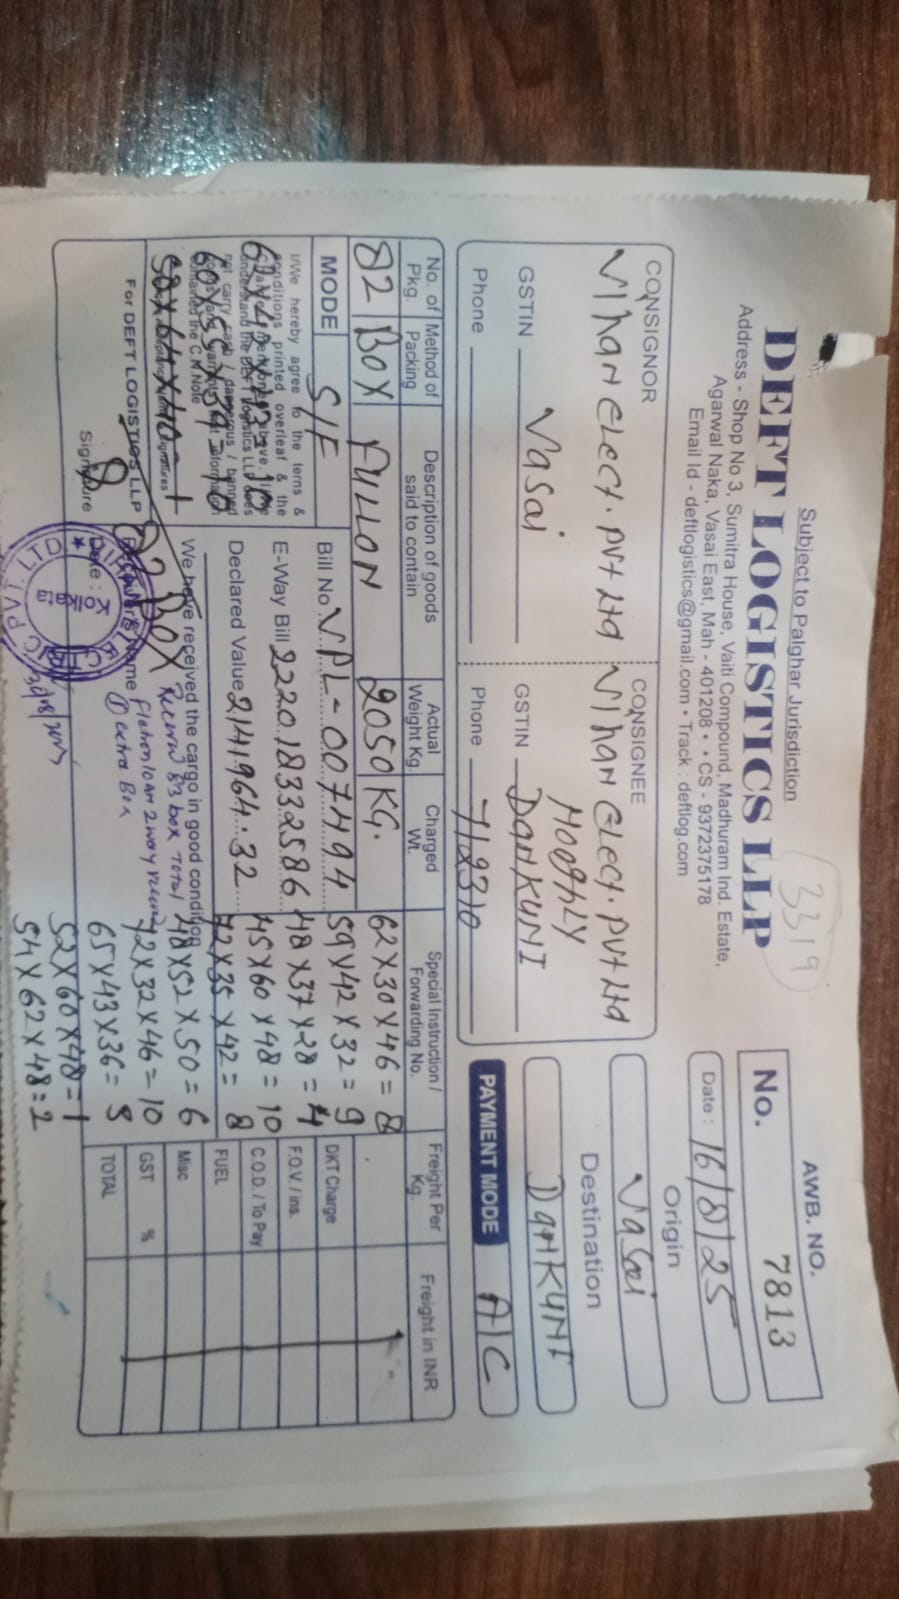 Subject to Palghar Jurisdiction
3319
DEFT LOGISTICS LLP
Address - Shop No 3, Sumitra House, Vaiti Compound, Madhuram Ind. Estate,
Agarwal Naka, Vasai East, Mah - 401208 • • CS - 9372375178
Email Id - deftlogistics@gmail.com • Track : deftlog.com
AWB. NO.
No. 7813
Date : 16/8/25
Origin
Vasai
Destination
DANKUNI
PAYMENT MODE A/C
CONSIGNOR
Vihan Elect. Pvt Ltd
Vasai
GSTIN
Phone
CONSIGNEE
Vihan Elect. Pvt Ltd
HooghLY
GSTIN DANKUNI
Phone 712310
No. of Pkg. Method of Packing Description of goods said to contain Actual Weight Kg. Charged Wt. Special Instruction / Forwarding No. Freight Per Kg. Freight in INR
82 BOX FULLON 2050 KG.
62 X 30 X 46 = 8
59 X 42 X 32 = 9
48 X 37 X 28 = 4
45 X 60 X 48 = 10
72 X 35 X 42 = 8
48 X 52 X 50 = 6
42 X 32 X 46 = 10
65 X 43 X 36 = 9
52 X 60 X 48 = 1
54 X 62 X 48 = 2
MODE S/F
Bill No. VPL-007494
E-Way Bill 222018332586
Declared Value 2141964.32
DKT Charge
F.O.V. / Ins.
C.O.D. / To Pay
FUEL
Misc
GST %
TOTAL
I/We hereby agree to the terms &
conditions printed overleaf & the
contained the C.N Note
60 X 55 X 39 = 10
58 X 64 X 40 = 1
For DEFT LOGISTICS LLP
8
Signature
We have received the cargo in good condition
82 BOX
Received 83 box Total
1 extra Box
Name
Date :
Kolkata